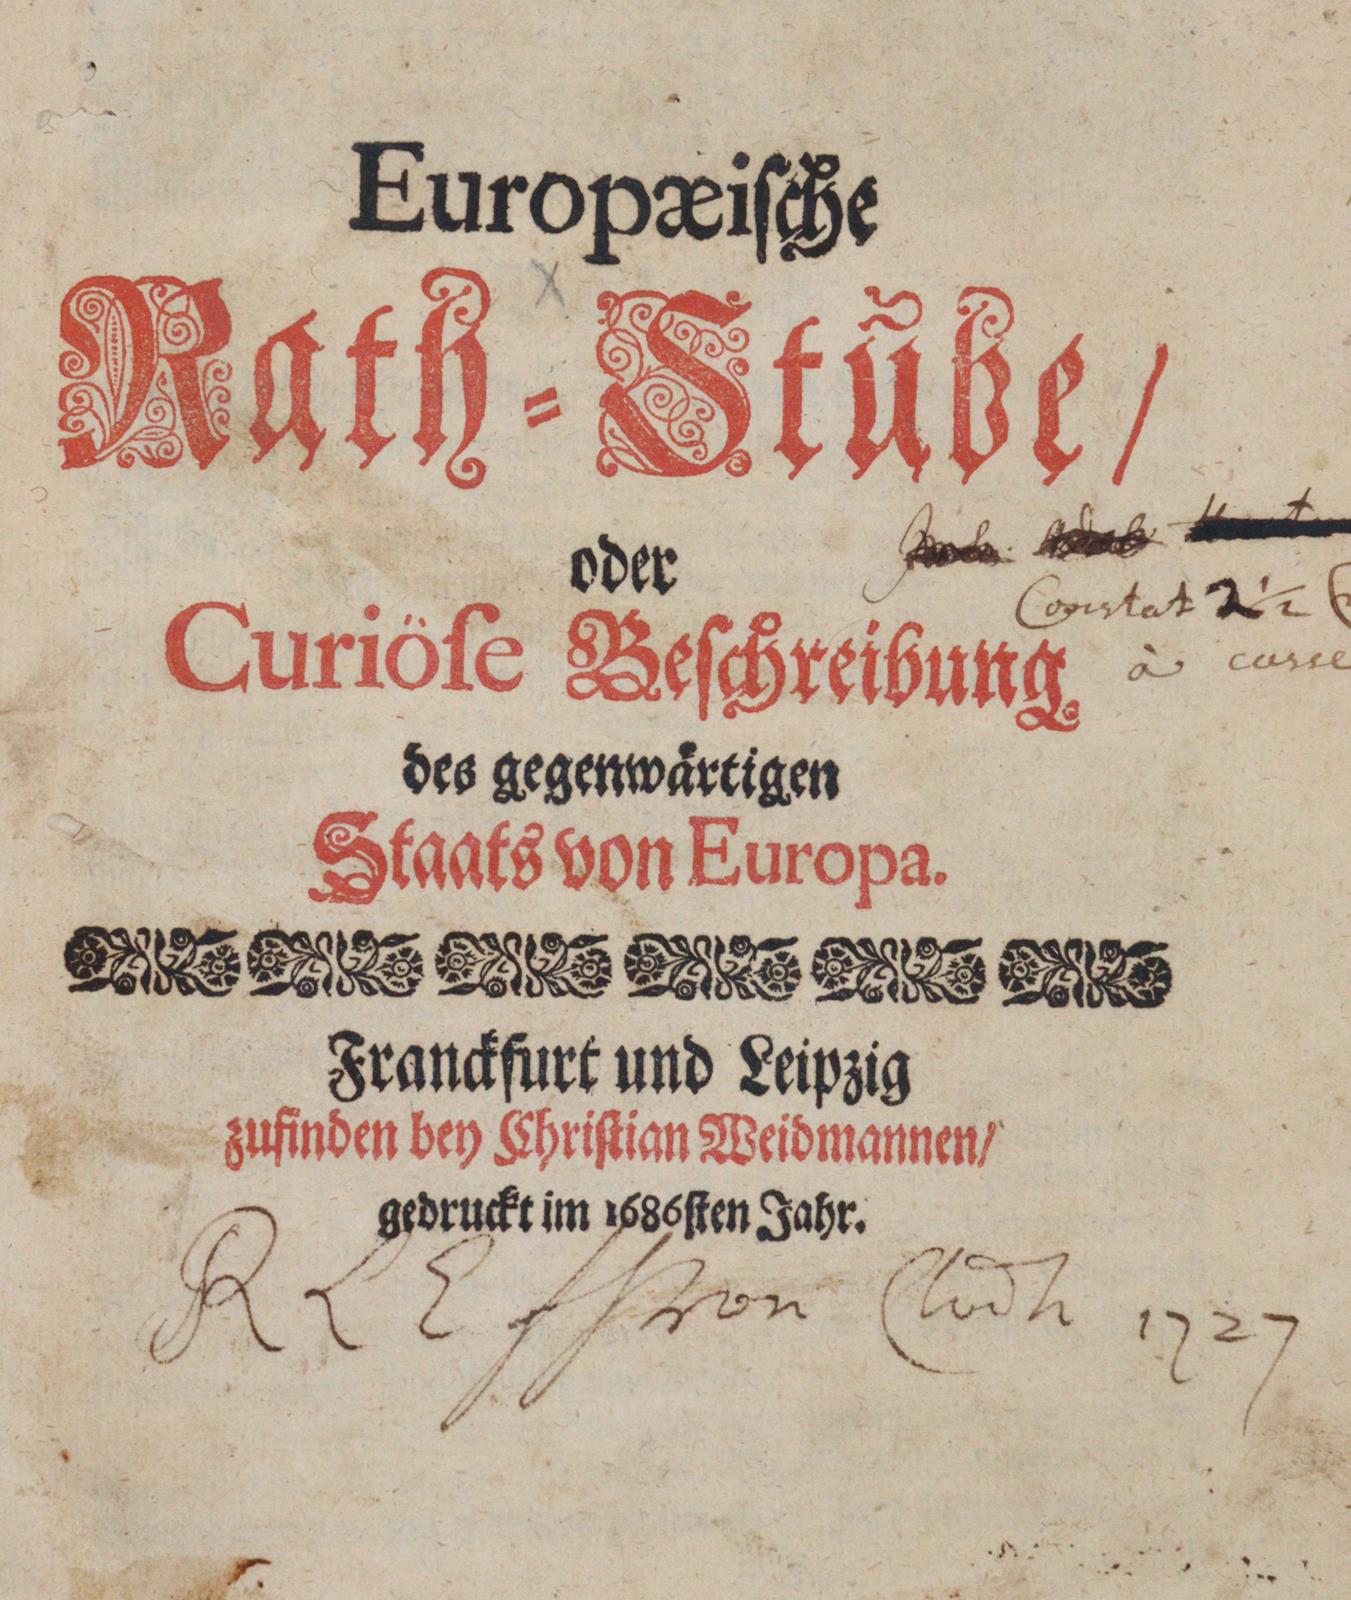 Europæiſche
Rath-Stůbe/
oder
Curiöſe Beſchreibung
des gegenwärtigen
Staats von Europa.
Constat 2 1/2
à
Franckfurt und Leipzig
zufinden bey Chriſtian Weidmannen/
gedruckt im 1686ſten Jahr.
R L E von 1727